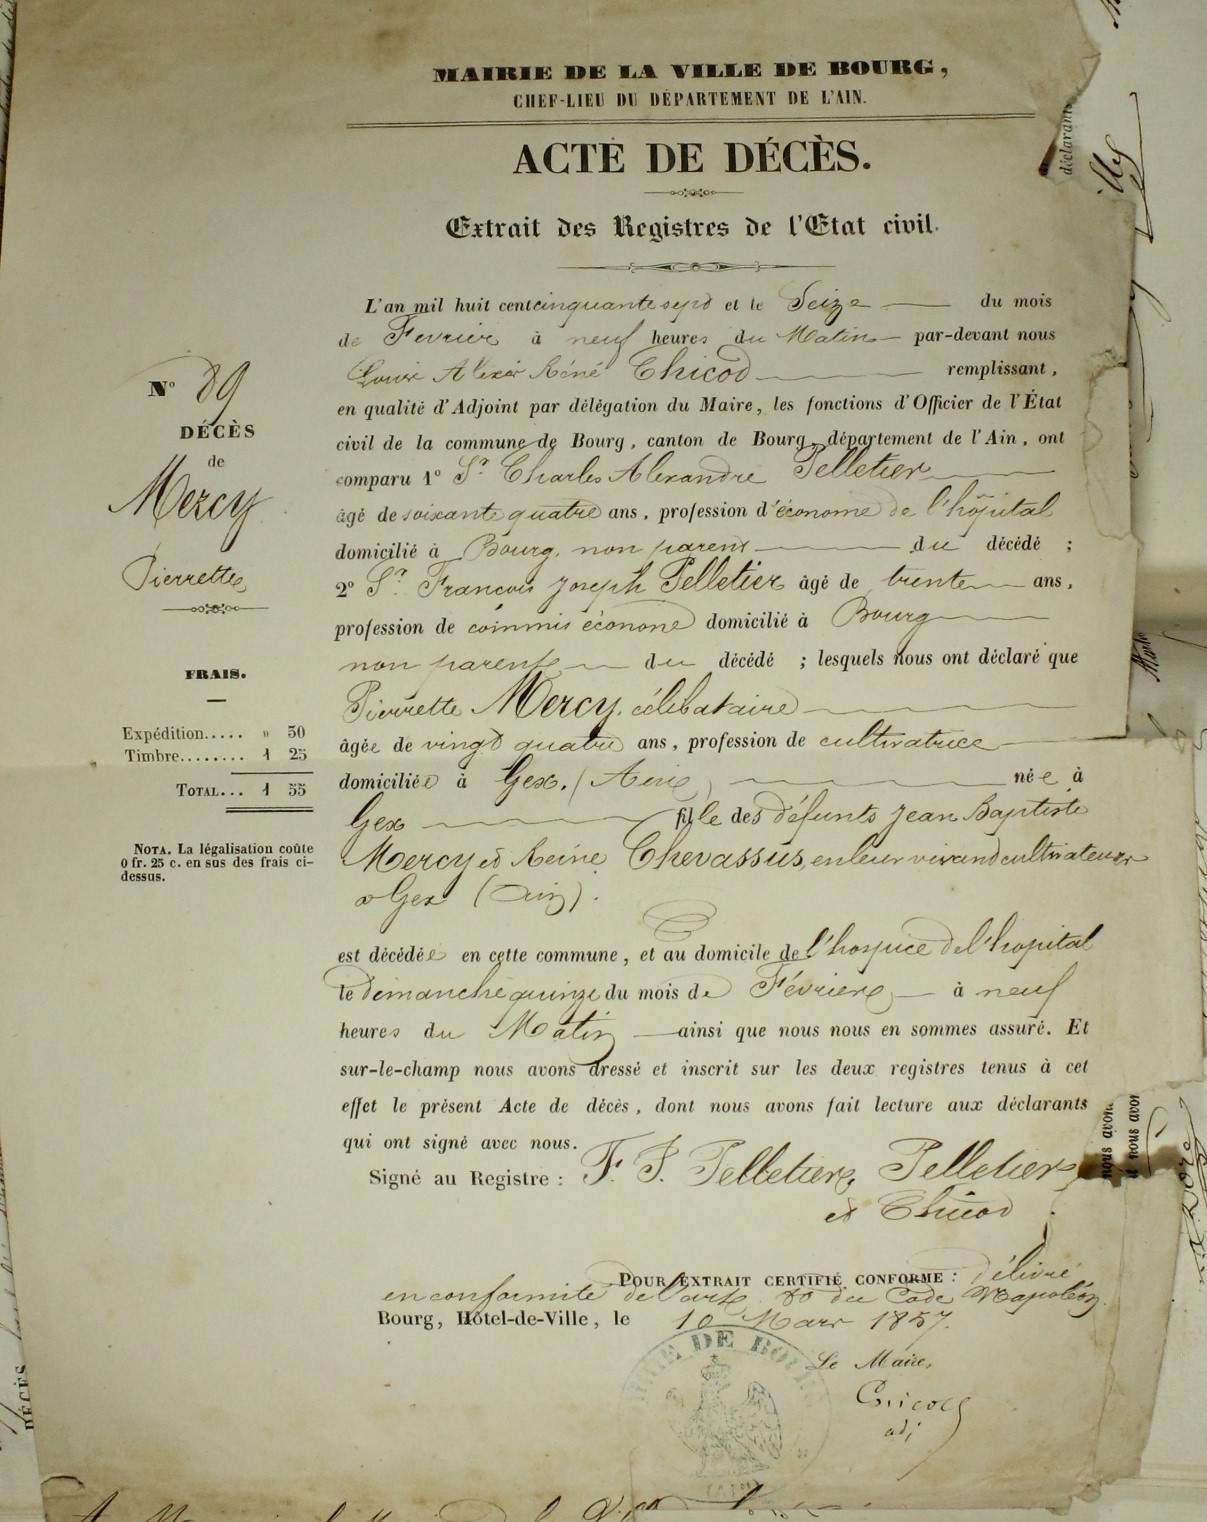 MAIRIE DE LA VILLE DE BOURG,
CHEF-LIEU DU DÉPARTEMENT DE L'AIN.
ACTE DE DÉCÈS.
Extrait des Registres de l'Etat civil.
L'an mil huit cent cinquante sept et le Seize du mois
de Fevrier à neuf heures du Matin par-devant nous
Louis Alexis Réné Chicod remplissant,
en qualité d'Adjoint par délégation du Maire, les fonctions d'Officier de l'État
civil de la commune de Bourg, canton de Bourg, département de l'Ain, ont
comparu 1º Sr. Charles Alexandre Pelletier
âgé de soixante quatre ans, profession d'économe de l'hôpital
domicilié à Bourg, non parent du décédé ;
2º Sr. Francois Joseph Pelletier âgé de trente ans,
profession de commis économe domicilié à Bourg
non parents du décédé ; lesquels nous ont déclaré que
Pierrette Mercy, célibataire
âgée de vingt quatre ans, profession de cultivatrice
domiciliée à Gex. (Ain) née à
Gex fille des défunts Jean Baptiste
Mercy et Reine Chevassus, en leur vivant cultivateurs
a Gex (Ain).
est décédée en cette commune, et au domicile de l'hospice de l'hopital
le dimanche quinze du mois de Février à neuf
heures du Matin ainsi que nous nous en sommes assuré. Et
sur-le-champ nous avons dressé et inscrit sur les deux registres tenus à cet
effet le présent Acte de décès, dont nous avons fait lecture aux déclarants
qui ont signé avec nous.
Signé au Registre : F. J. Pelletier, Pelletier
et Chicod
POUR EXTRAIT CERTIFIÉ CONFORME : délivré
en conformité de l'art. 80 du Code Napoléon.
Bourg, Hôtel-de-Ville, le 10 Mars 1857.
Le Maire,
Chicod
adj
Nº 89
DÉCÈS
de
Mercy
Pierrette
FRAIS.
Expédition..... » 50
Timbre........ 1 25
TOTAL... 1 55
NOTA. La légalisation coûte
0 fr. 25 c. en sus des frais ci-
dessus.
DE BOU
déclarant
nous avons
nous avon
DÉCÈS